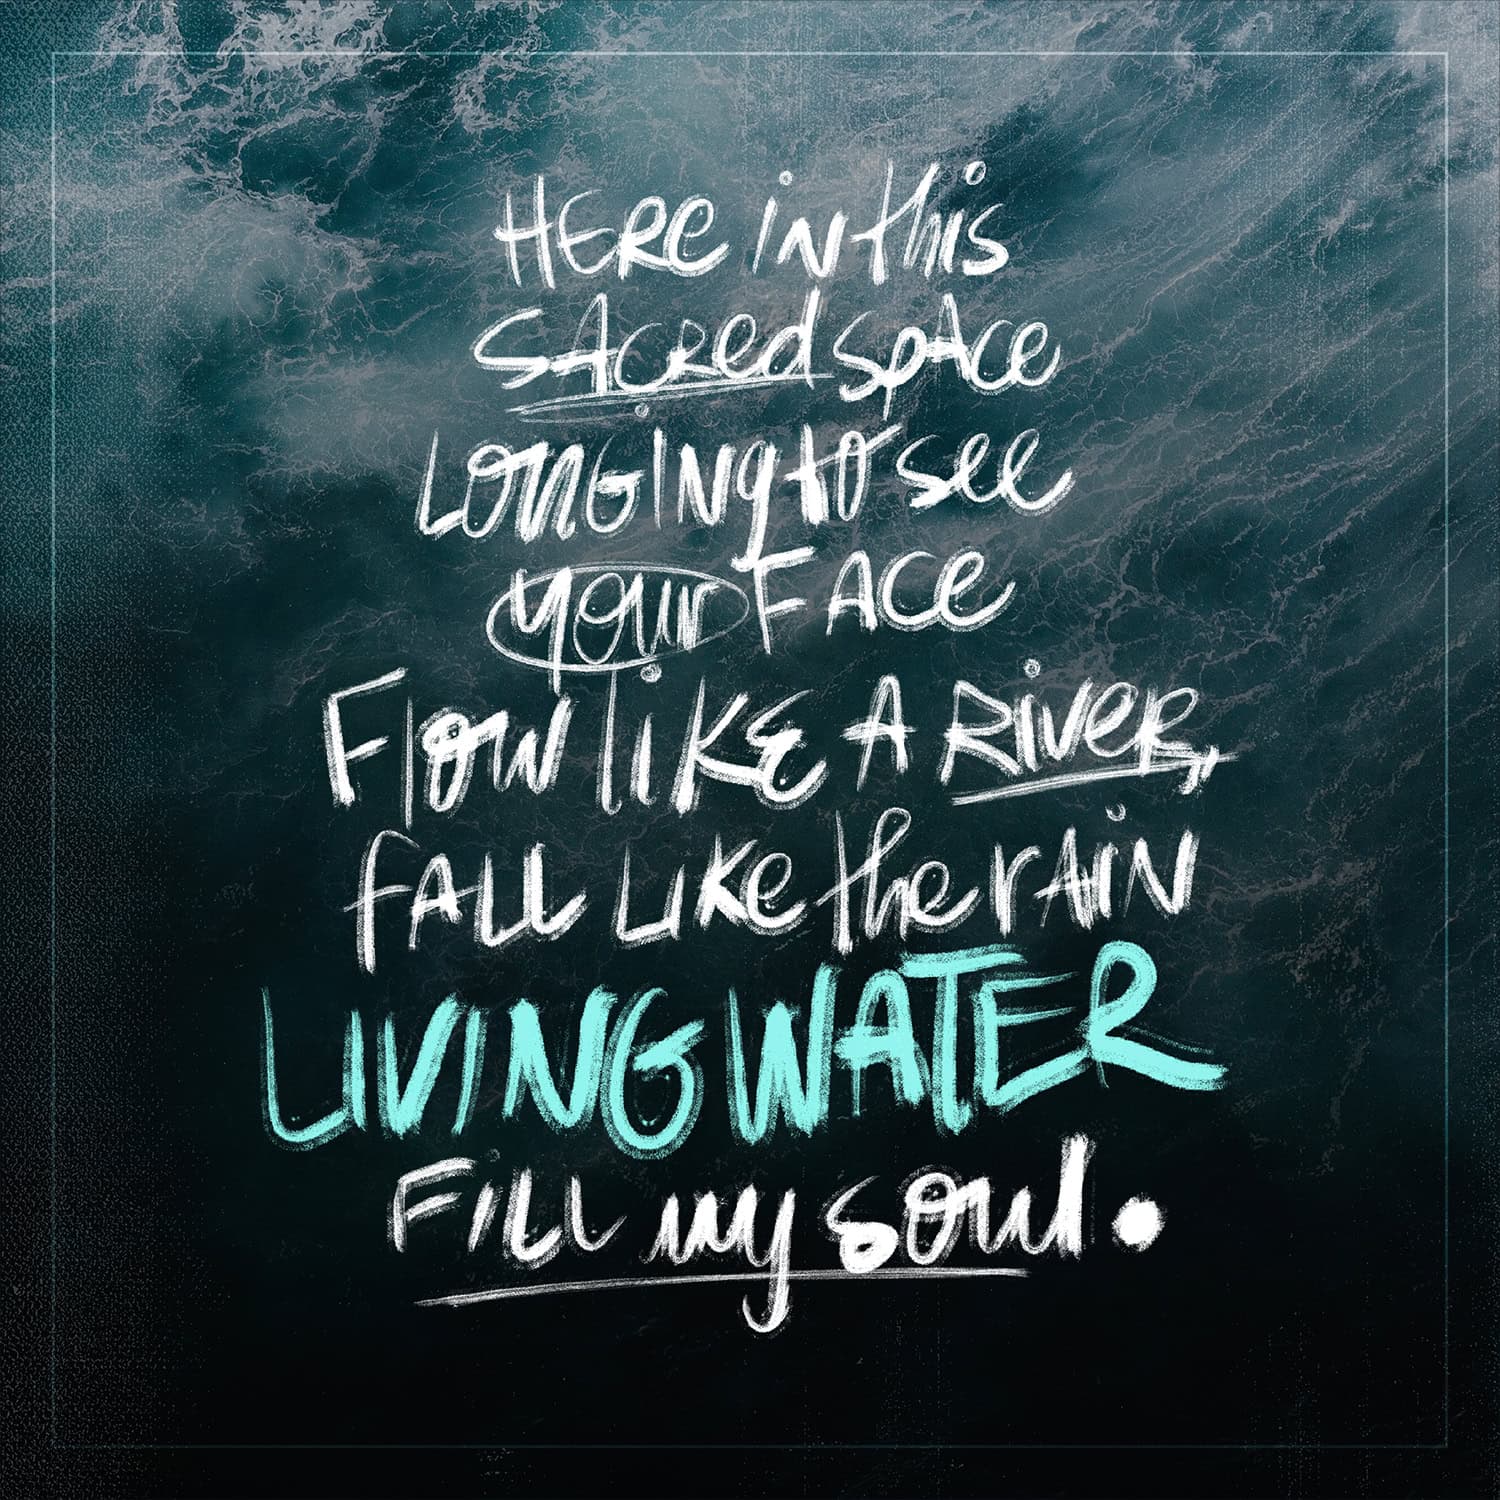 Here in this
sacred space
longing to see
your face
Flow like a river,
fall like the rain
LIVING WATER
fill my soul.